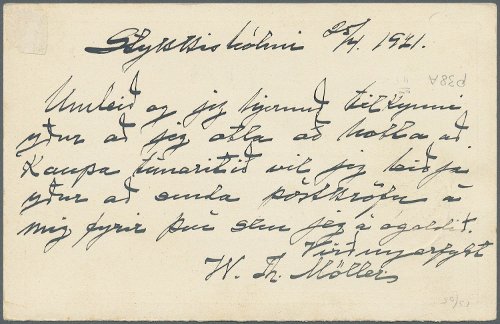 Stykkishólmi 25/4. 1921.
p38A
Umleið og jeg hjermeð tilkynni
yður að jeg ætla að hætta að
kaupa tímaritið vil jeg biðja
yður að senda póstkröfu á
mig fyrir því sem jeg á ógoldið.
Virðingarfyllst
W. Th. Möller